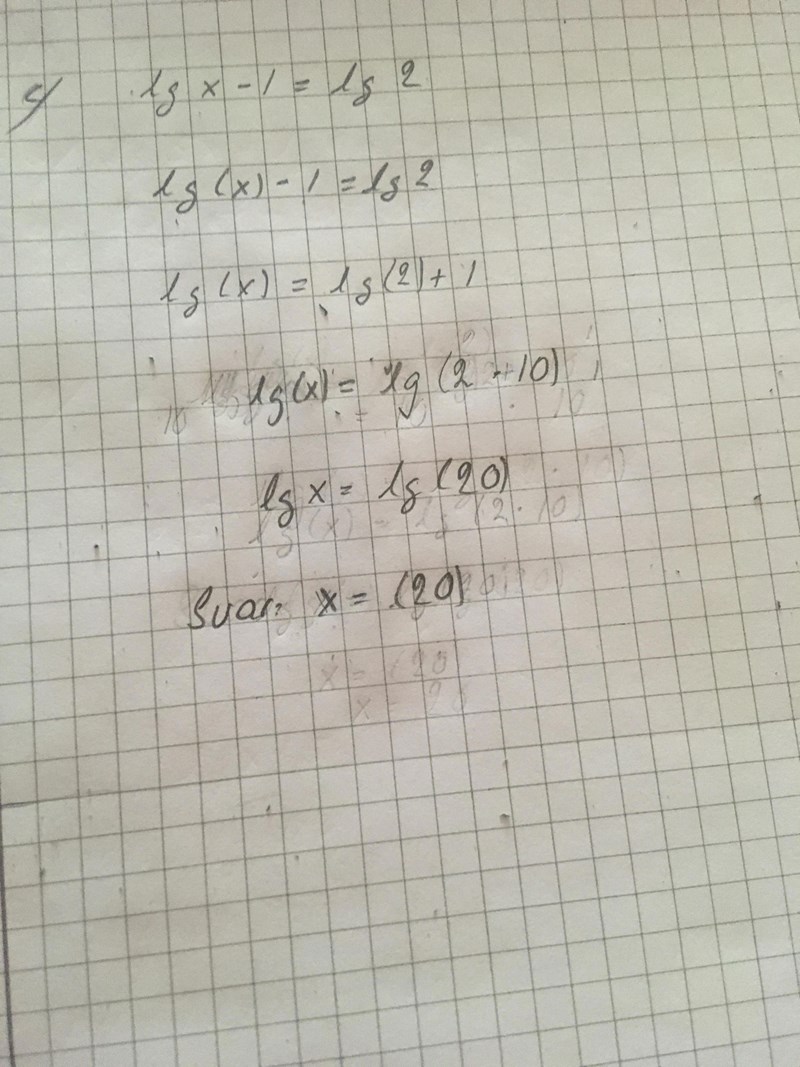 c) lg x - 1 = lg 2
lg (x) - 1 = lg 2
lg (x) = lg (2) + 1
lg (x) = lg (2 · 10)
lg x = lg (20)
Svar: x = (20)